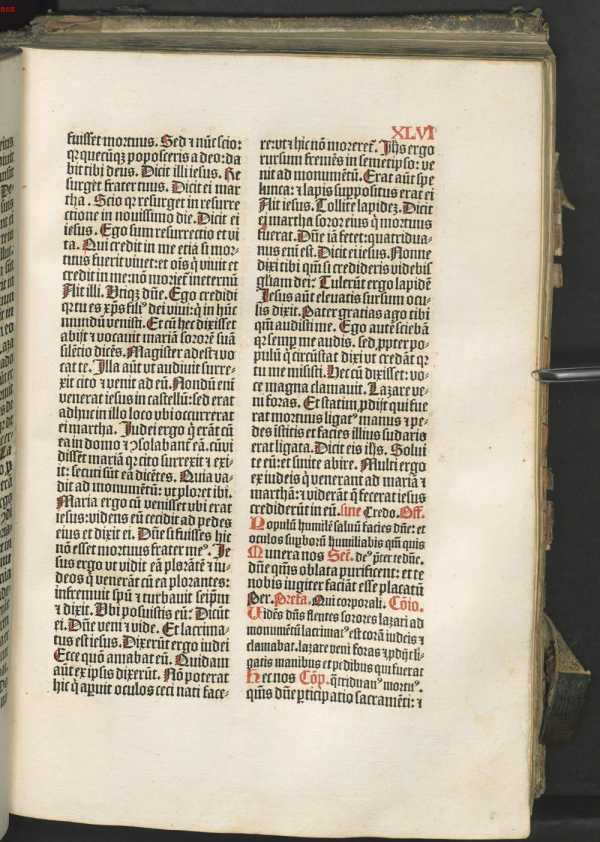 XLVI
fuisset mortuus. Sed ⁊ nūc scio:
qꝛ quecūqꝫ poposceris a deo: da
bit tibi deus. Dicit illi iesus. Re
surget frater tuus. Dicit ei mar
tha. Scio qꝛ resurget in resurre
ctione in nouissimo die. Dicit ei
iesus. Ego sum resurrectio et vi
ta. Qui credit in me etiā si mor⸗
tuus fuerit viuet: et oīs q̄ viuit et
credit in me: nō moriet̄ ineternū
Ait illi. Utiqꝫ dn̄e. Ego credidi
qꝛ tu es xp̄s filiꝰ dei viui: q̄ in hūc
mundū venisti. Et cū hec dixisset
abijt ⁊ vocauit mariā sororē suā
silētio dicēs. Magister adest ⁊ vo
cat te. Illa aūt vt audiuit surre⸗
xit cito ⁊ venit ad eū. Nondū enī
venerat iesus in castellū: sed erat
adhuc in illo loco vbi occurrerat
ei martha. Iudei ergo q̄ erāt cū
ea in domo ⁊ ꝯsolabant̄ eā. cū vi
dissēt mariā qꝛ cito surrexit ⁊ exi⸗
it: secuti sūt eā dicētes. Quia va⸗
dit ad monumētū: vt ploret ibi.
Maria ergo cū venisset vbi erat
iesus: videns eū cecidit ad pedes
eius et dixit ei. Dn̄e si fuisses hic
nō esset mortuus frater meꝰ. Ie
sus ergo vt vidit eā plorātē ⁊ iu⸗
deos q̄ venerāt cū ea plorantes:
infremuit spū ⁊ turbauit seipm̄
⁊ dixit. Ubi posuistis eū: Dicūt
ei. Dn̄e veni ⁊ vide. Et lacrima⸗
tus est iesus. Dixerūt ergo iudei
Ecce quō amabat eū. Quidam
aūt ex ipsis dixerūt. Nō poterat
hic q̄ apruit oculos ceci nati face⸗
re: vt ⁊ hic nō moreret̄. Ihs ergo
rursum fremēs in semetipso: ve
nit ad monumētū. Erat aūt spe
lunca: ⁊ lapis suppositus erat ei
Ait iesus. Tollite lapidez. Dicit
ei martha soror eius q̄ mortuus
fuerat. Dn̄e iā fetet: quatridua⸗
nus enī est. Dicit ei iesus. Nonne
dixi tibi qm̄ si credideris videbis
gl̄iam dei: Tulerūt ergo lapidē
Iesus aūt eleuatis sursum ocu⸗
lis dixit. Pater gratias ago tibi
qm̄ audisti me. Ego autē sciebā
qꝛ semp me audis. sed ꝓpter po⸗
pulū q̄ circūstat dixi vt credāt qꝛ
tu me misisti. Hec cū dixisset: vo⸗
ce magna clamauit. Lazare ve⸗
ni foras. Et statim ꝓdijt qui fue
rat mortuus ligatꝰ manus ⁊ pe⸗
des istitis et facies illius sudario
erat ligata. Dicit eis ihs. Solui
te eū: et sinite abire. Multi ergo
ex iudeis q̄ venerant ad mariā ⁊
marthā: ⁊ viderāt q̄ fecerat iesus
crediderūt in eū. sine Credo. Off.
Populū humilē saluū facies dn̄e: et
oculos suꝑboꝝ humiliabis qm̄ quis
Munera nos Secr. deꝰ p̄ter te dn̄e.
dn̄e qm̄s oblata purificent: et te
nobis iugiter faciāt esse placatū
Per. Prefa. Qui corporali. Cōio.
Uidēs dn̄s flentes sorores lazari ad
monumētū lacrimatꝰ est corā iudeis ⁊
clamabat. lazare veni foras ⁊ ꝓdijt li⸗
gatis manibus et pedibus qui fuerat
Hec nos Cōp. q̄triduanꝰ mortuꝰ.
qm̄s dn̄e ꝑticipatio sacramēti: ⁊